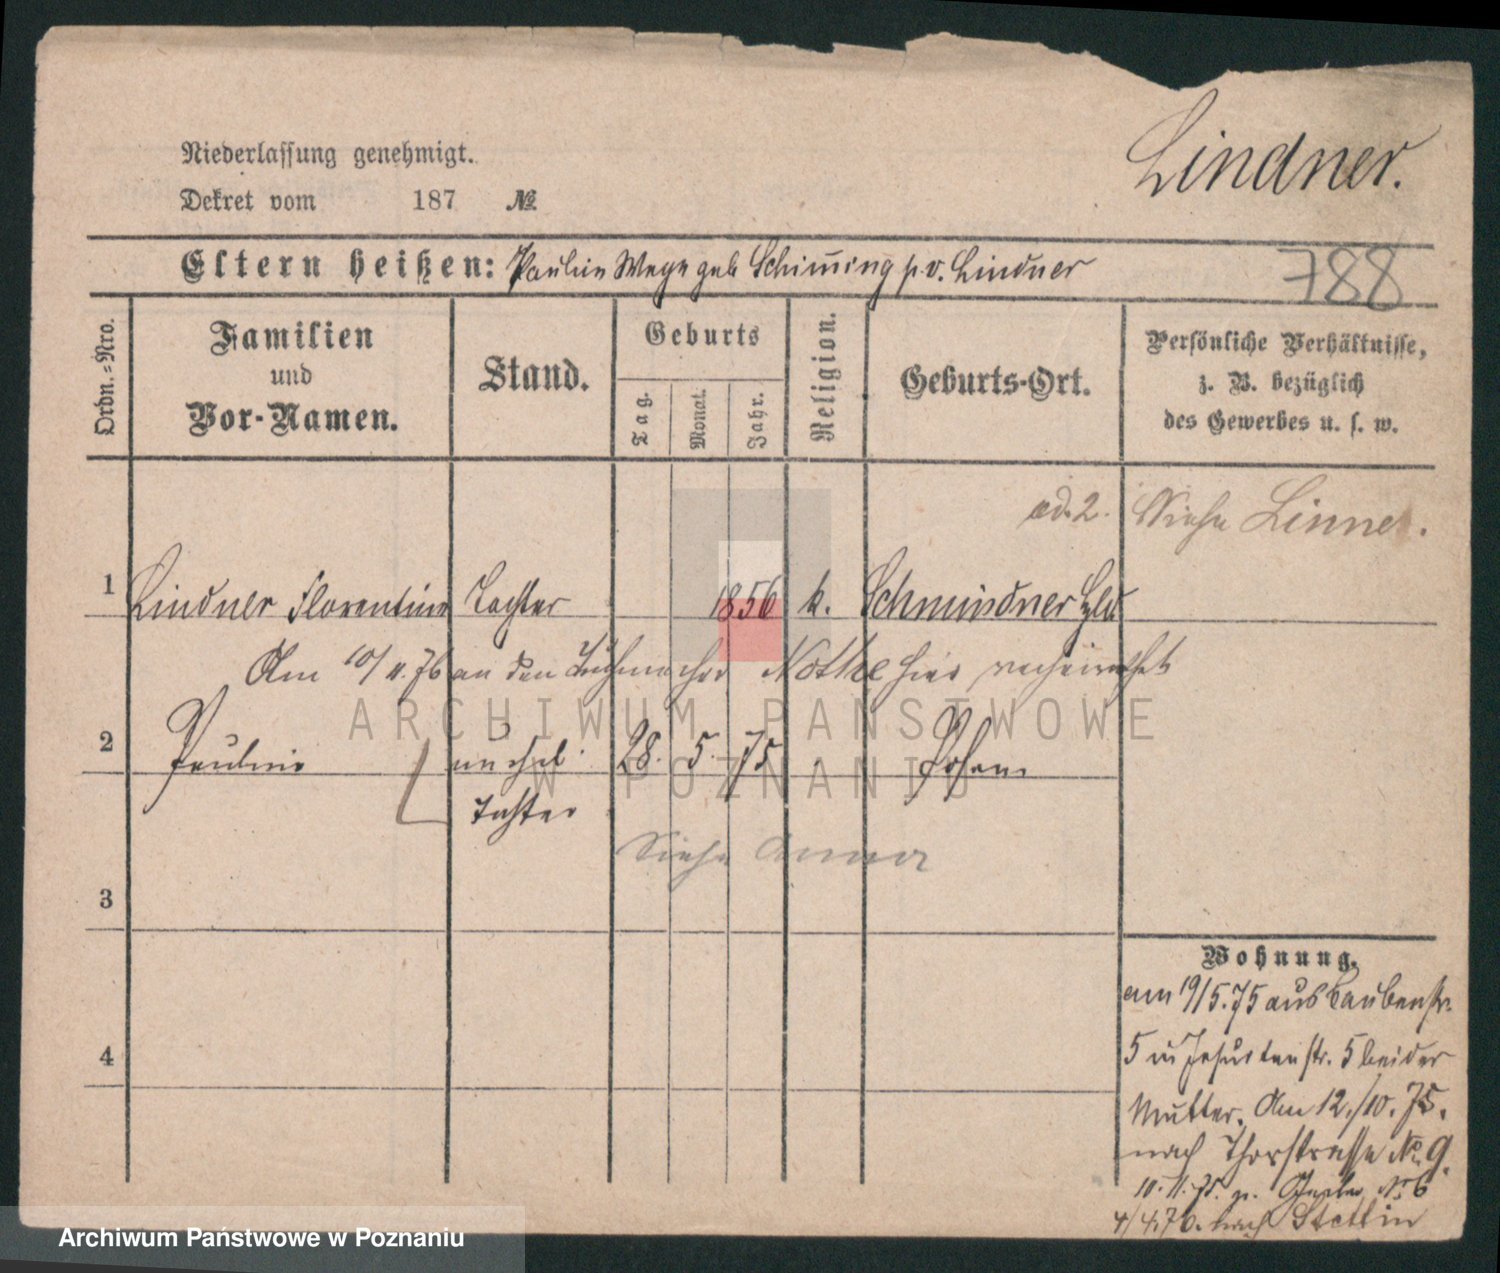 Lindner.
Niederlassung genehmigt.
Dekret vom 187 №
Eltern heißen: Pauline Wege geb Schiming p. v. Lindner
788
Ordn.-Nro.
Familien
und
Vor-Namen.
Stand.
Geburts
Tag.
Monat.
Jahr.
Religion.
Geburts-Ort.
Persönliche Verhältnisse,
z. B. bezüglich
des Gewerbes u. s. w.
ad. 2. Siehe Linner.
1 Lindner Florentine Tochter 1856 k.
Am 10/ 11. 76 an den Nothe hier verheirathet
2 Pauline unehel. 28. 5. 75 Posen
Tochter
Siehe
3
4
Wohnung.
am 19/5. 75 aus Taubenstr.
5 in Jesuitenstr. 5 bei der
Mutter. Am 12./10. 75.
nach Thorstrasse No. 9.
10. 11. 75. No 6
4/4. 76. nach Stettin
ARCHIWUM PAŃSTWOWE
W POZNANIU
Archiwum Państwowe w Poznaniu